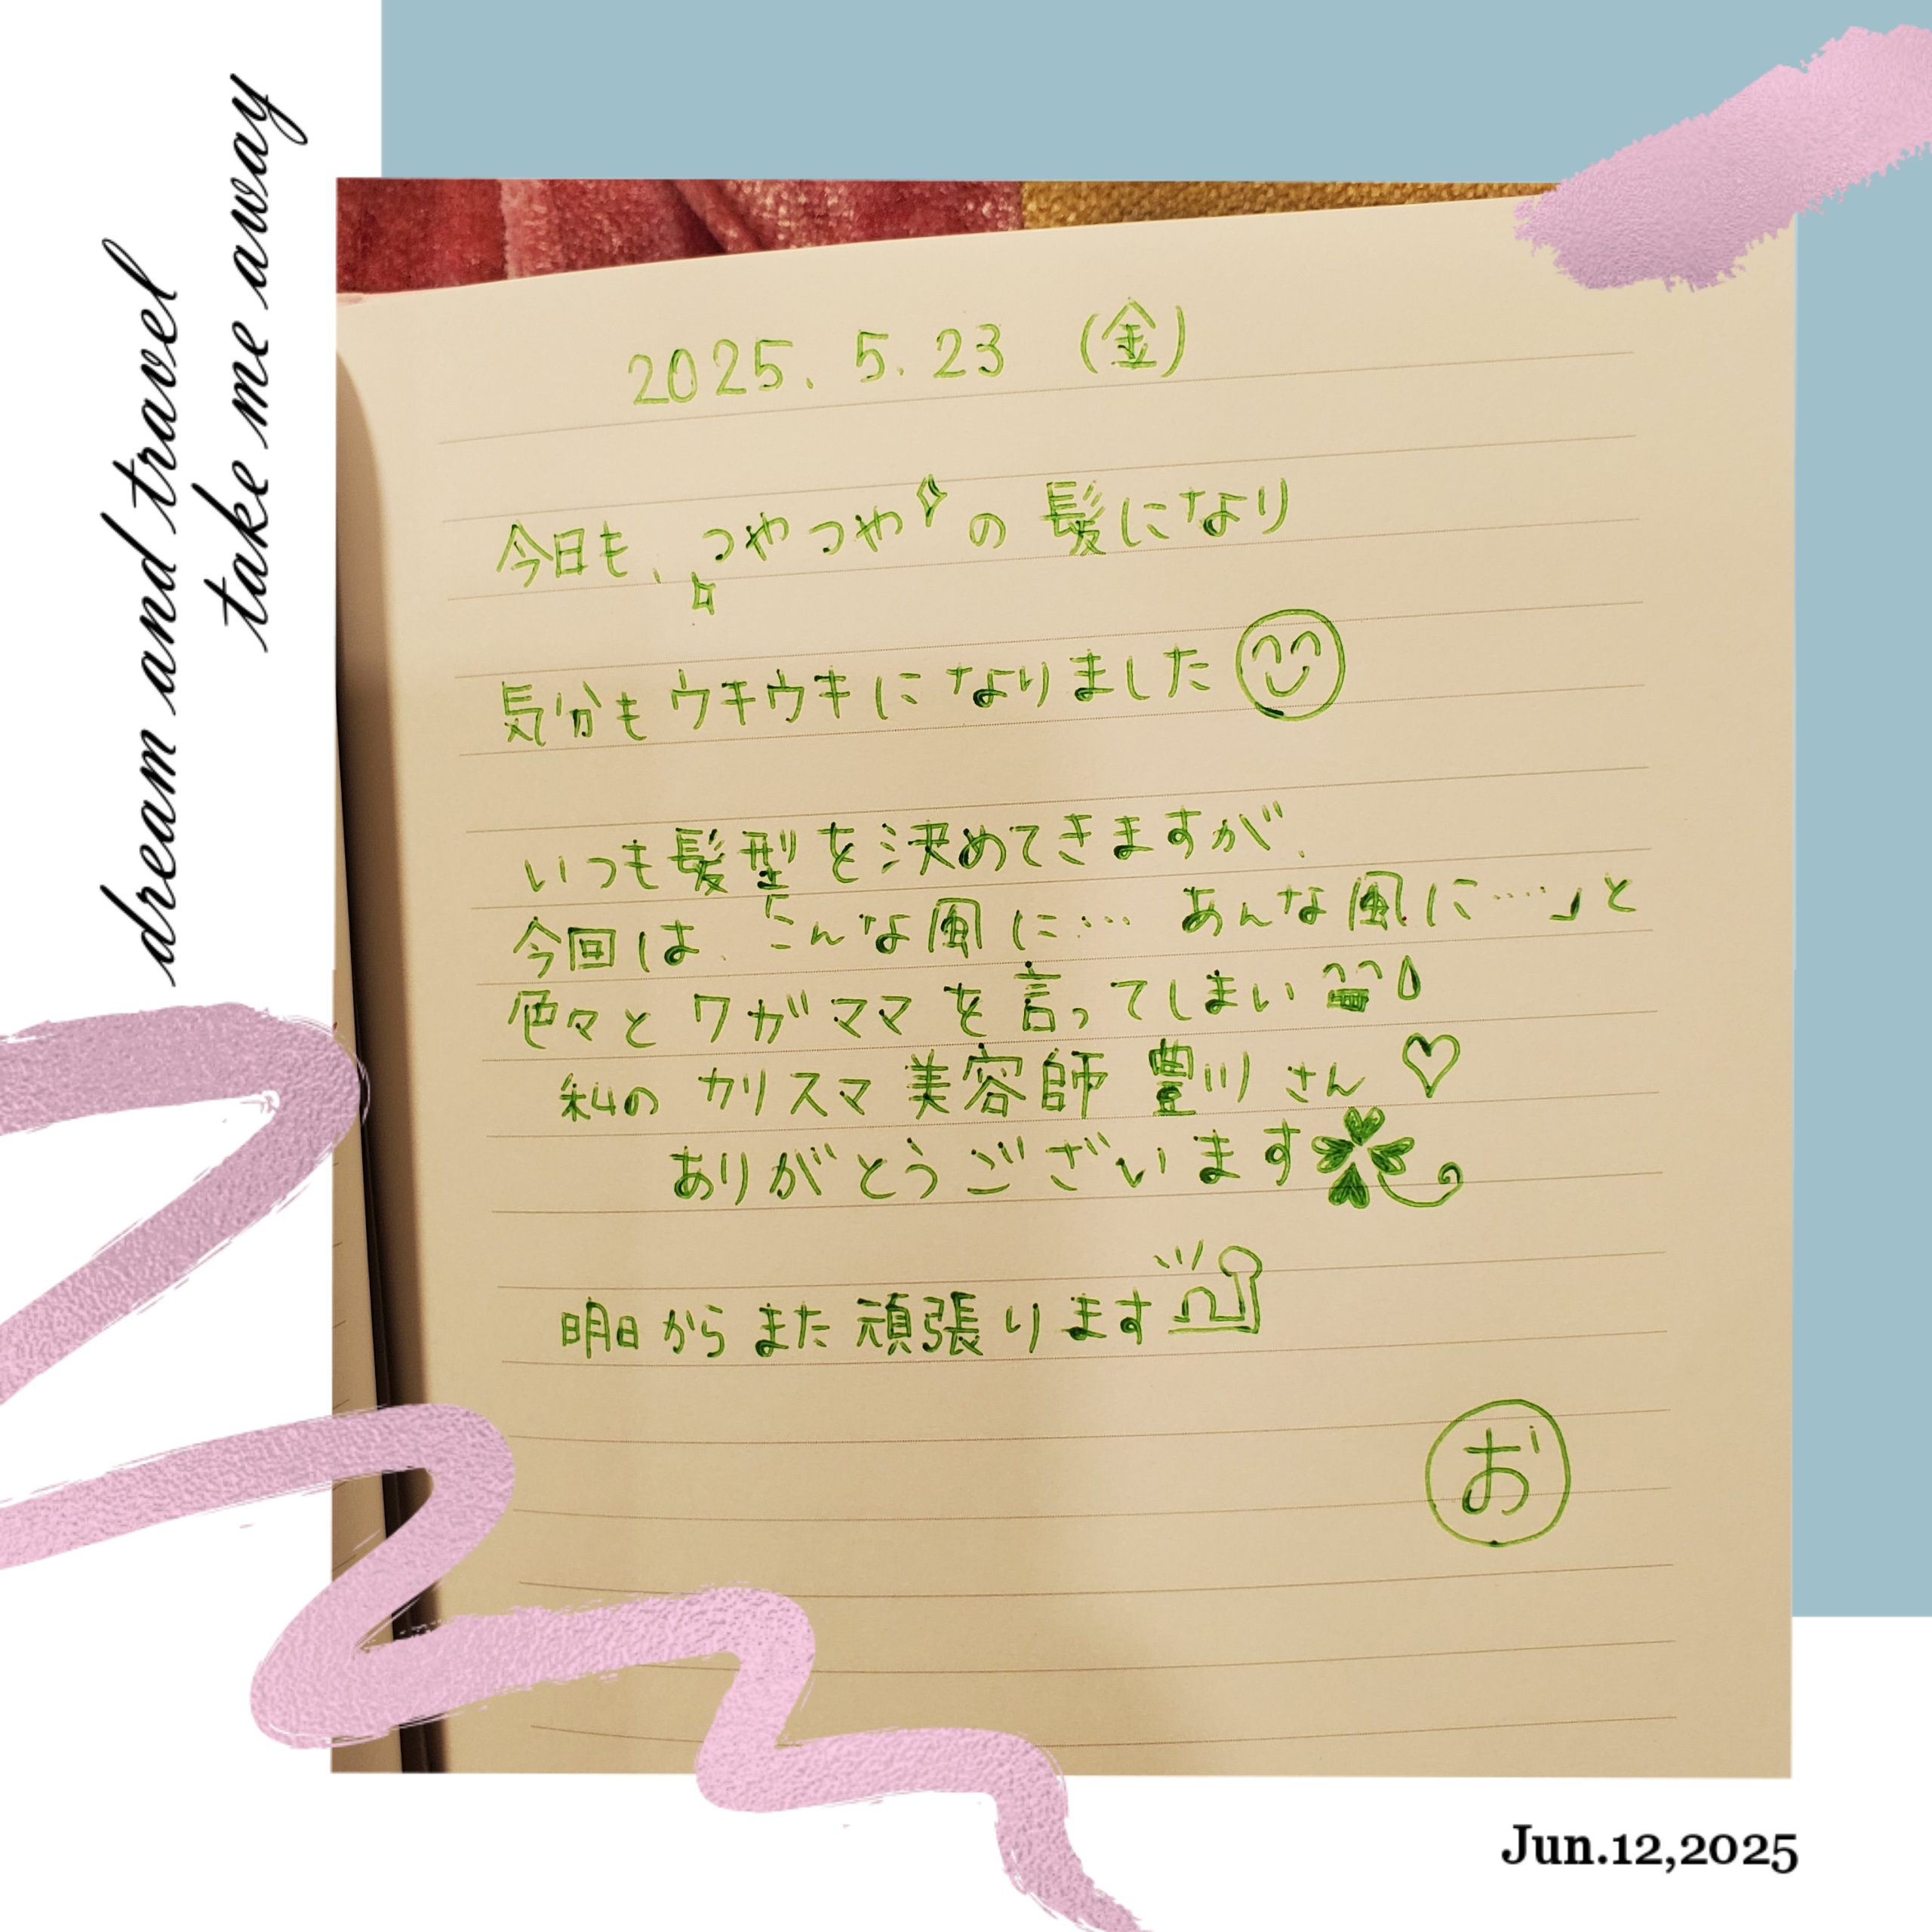 dream and travel
take me away
2025. 5. 23 (金)
今日も、つやつやの 髪になり
気分もウキウキに なりました
いつも髪型を決めてきますが、
今回は、「こんな風に… あんな風に…」と
色々と ワガママを言ってしまい
私の カリスマ 美容師 豊川さん
ありがとうございます
明日から また 頑張ります
お
Jun.12,2025